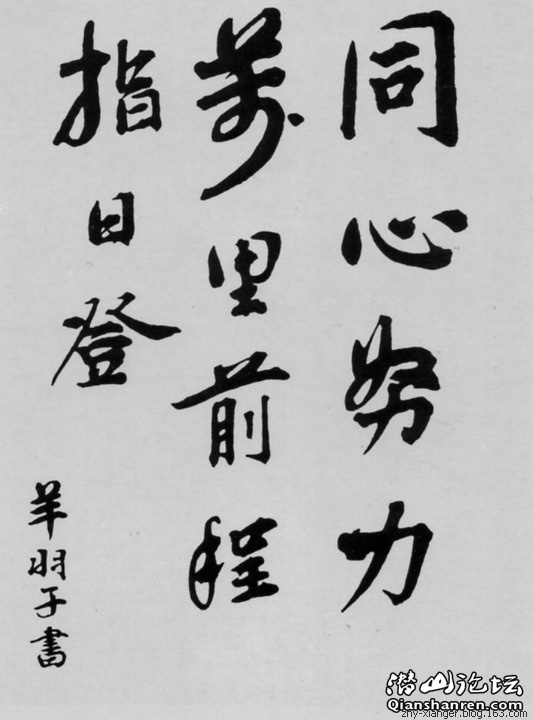 同心努力
萬里前程
指日登
羊羽子書
潜山论坛
Qianshanren.com
zhy-xianger.blog.163.com